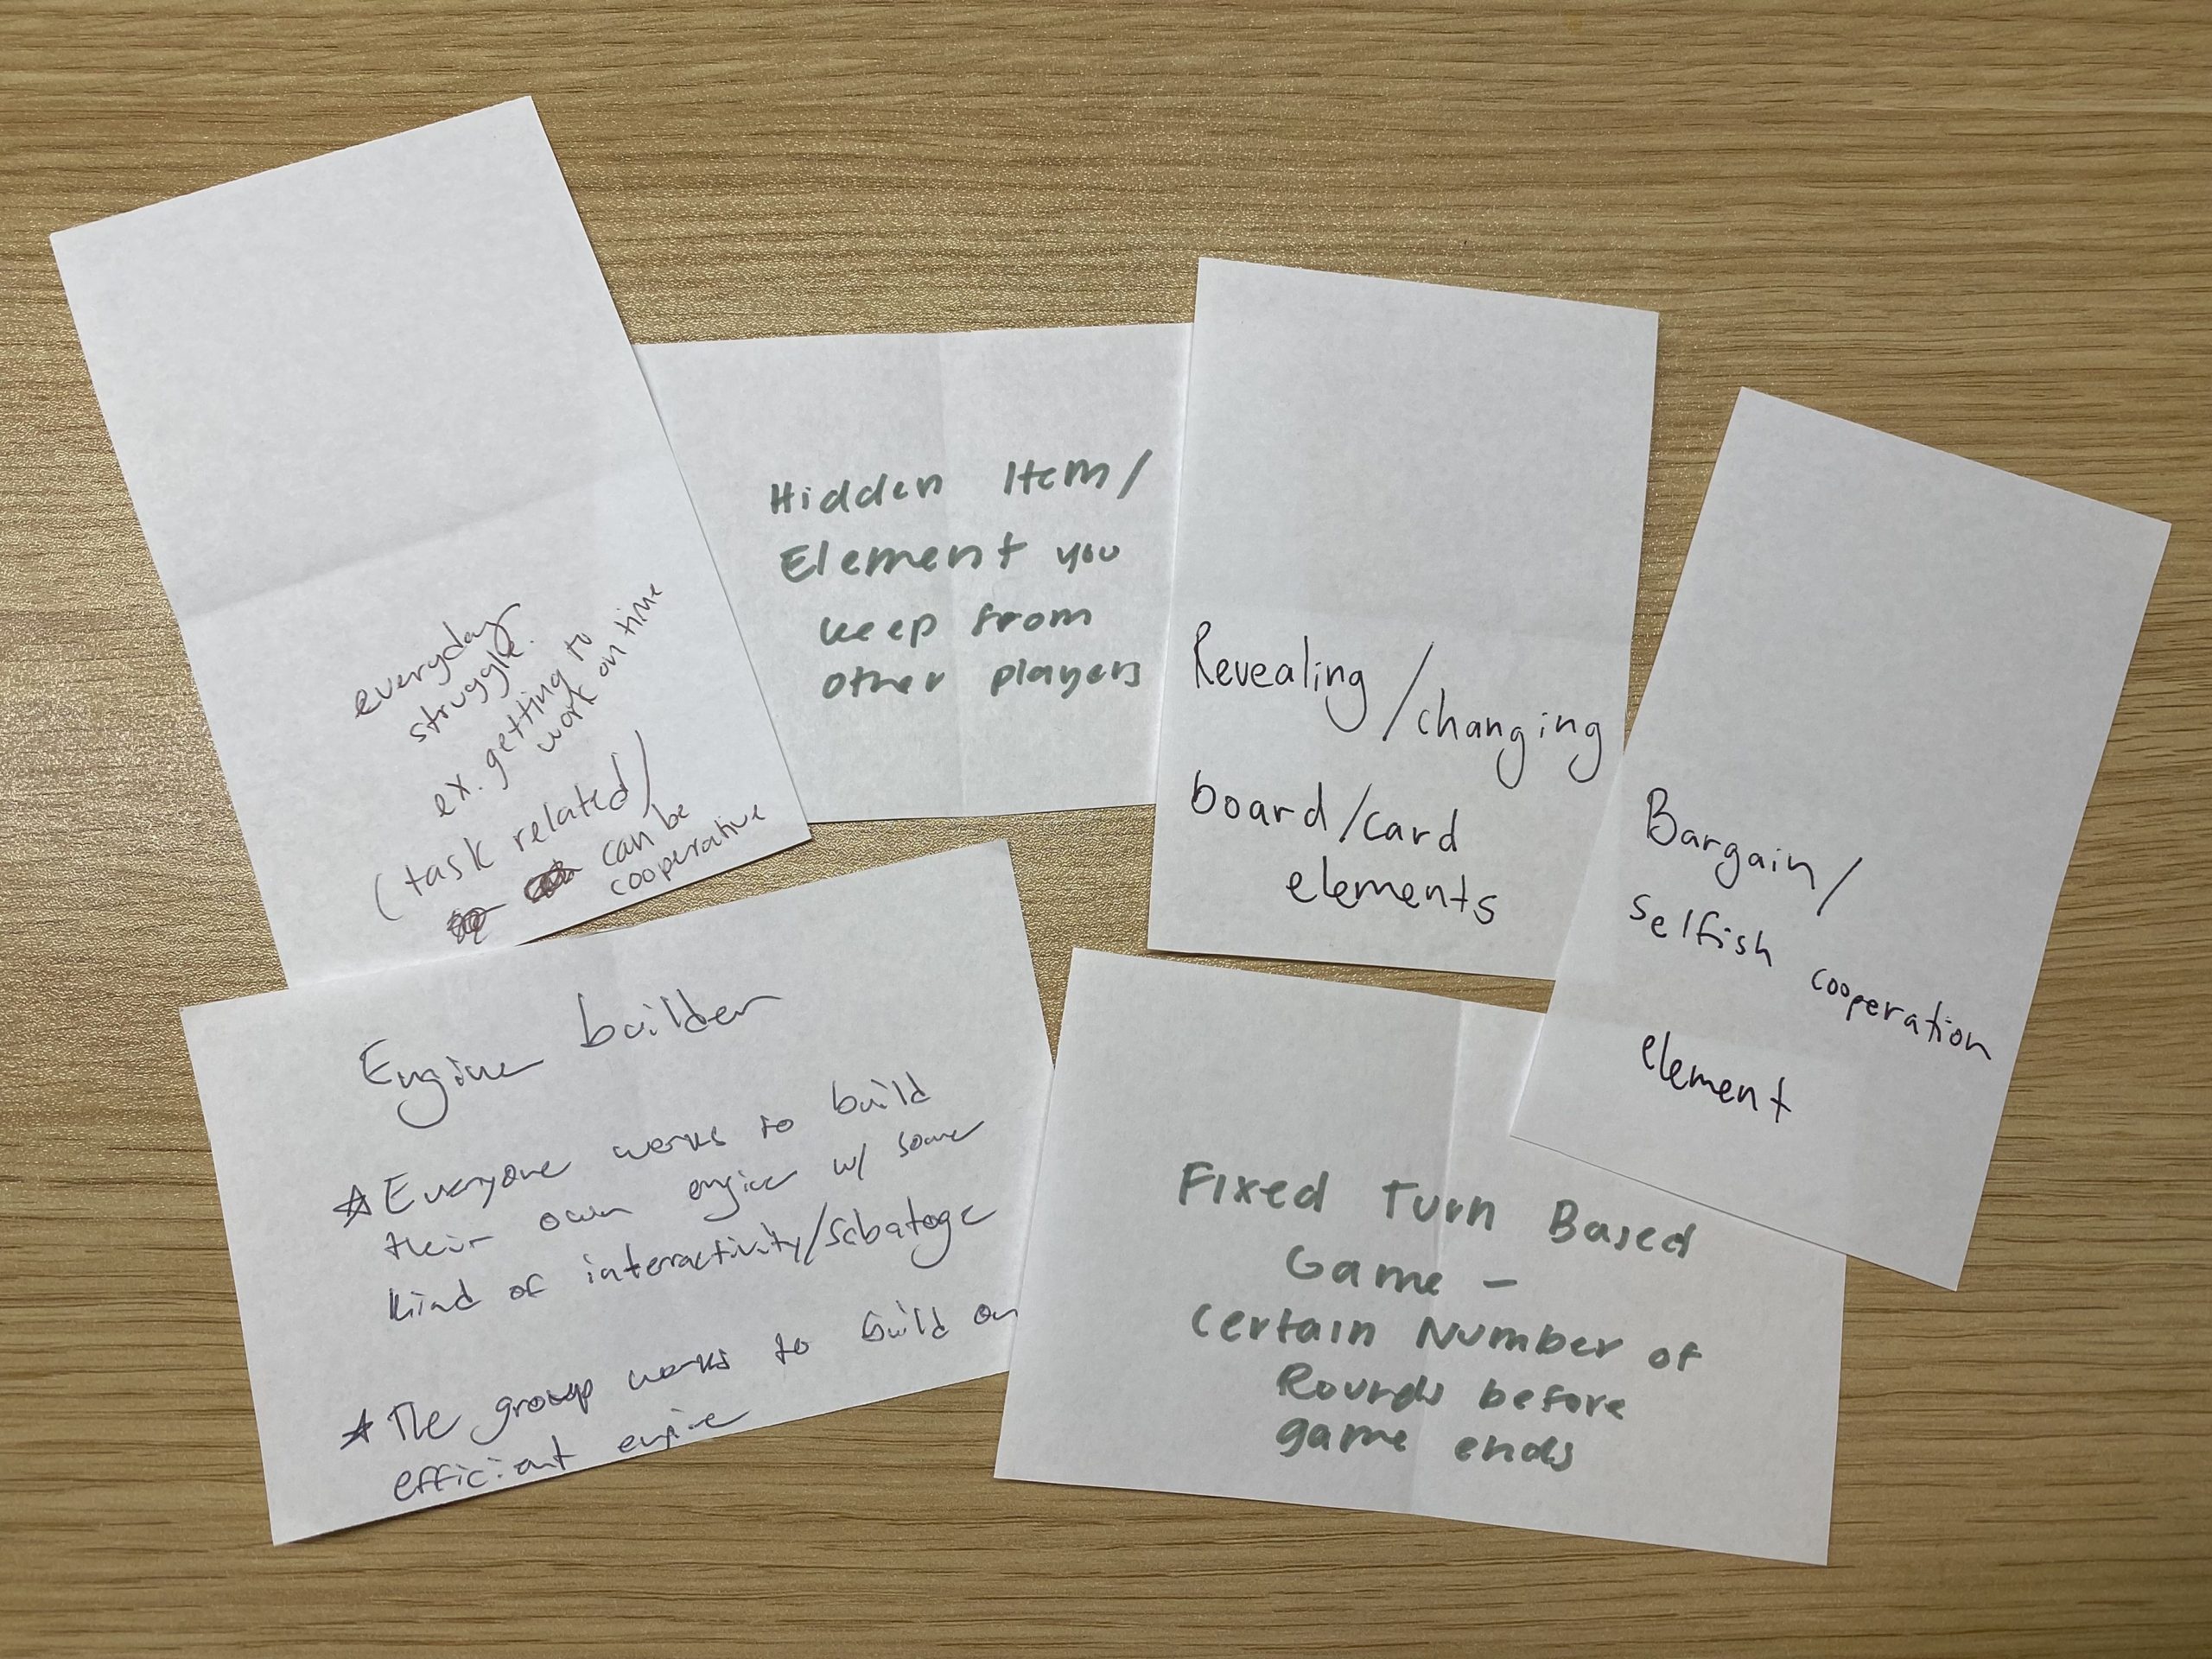 everyday
struggle.
ex. getting to
work on time
(task related/
can be
cooperative
Hidden Item/
Element you
keep from
other players
Revealing/changing
board/card
elements
Bargain/
selfish cooperation
element
Engine builder
☆ Everyone works to build
their own engine w/ some
kind of interactivity/sabatoge
☆ The group works to build an
efficient engine
Fixed Turn Based
Game -
Certain Number of
Rounds before
game ends